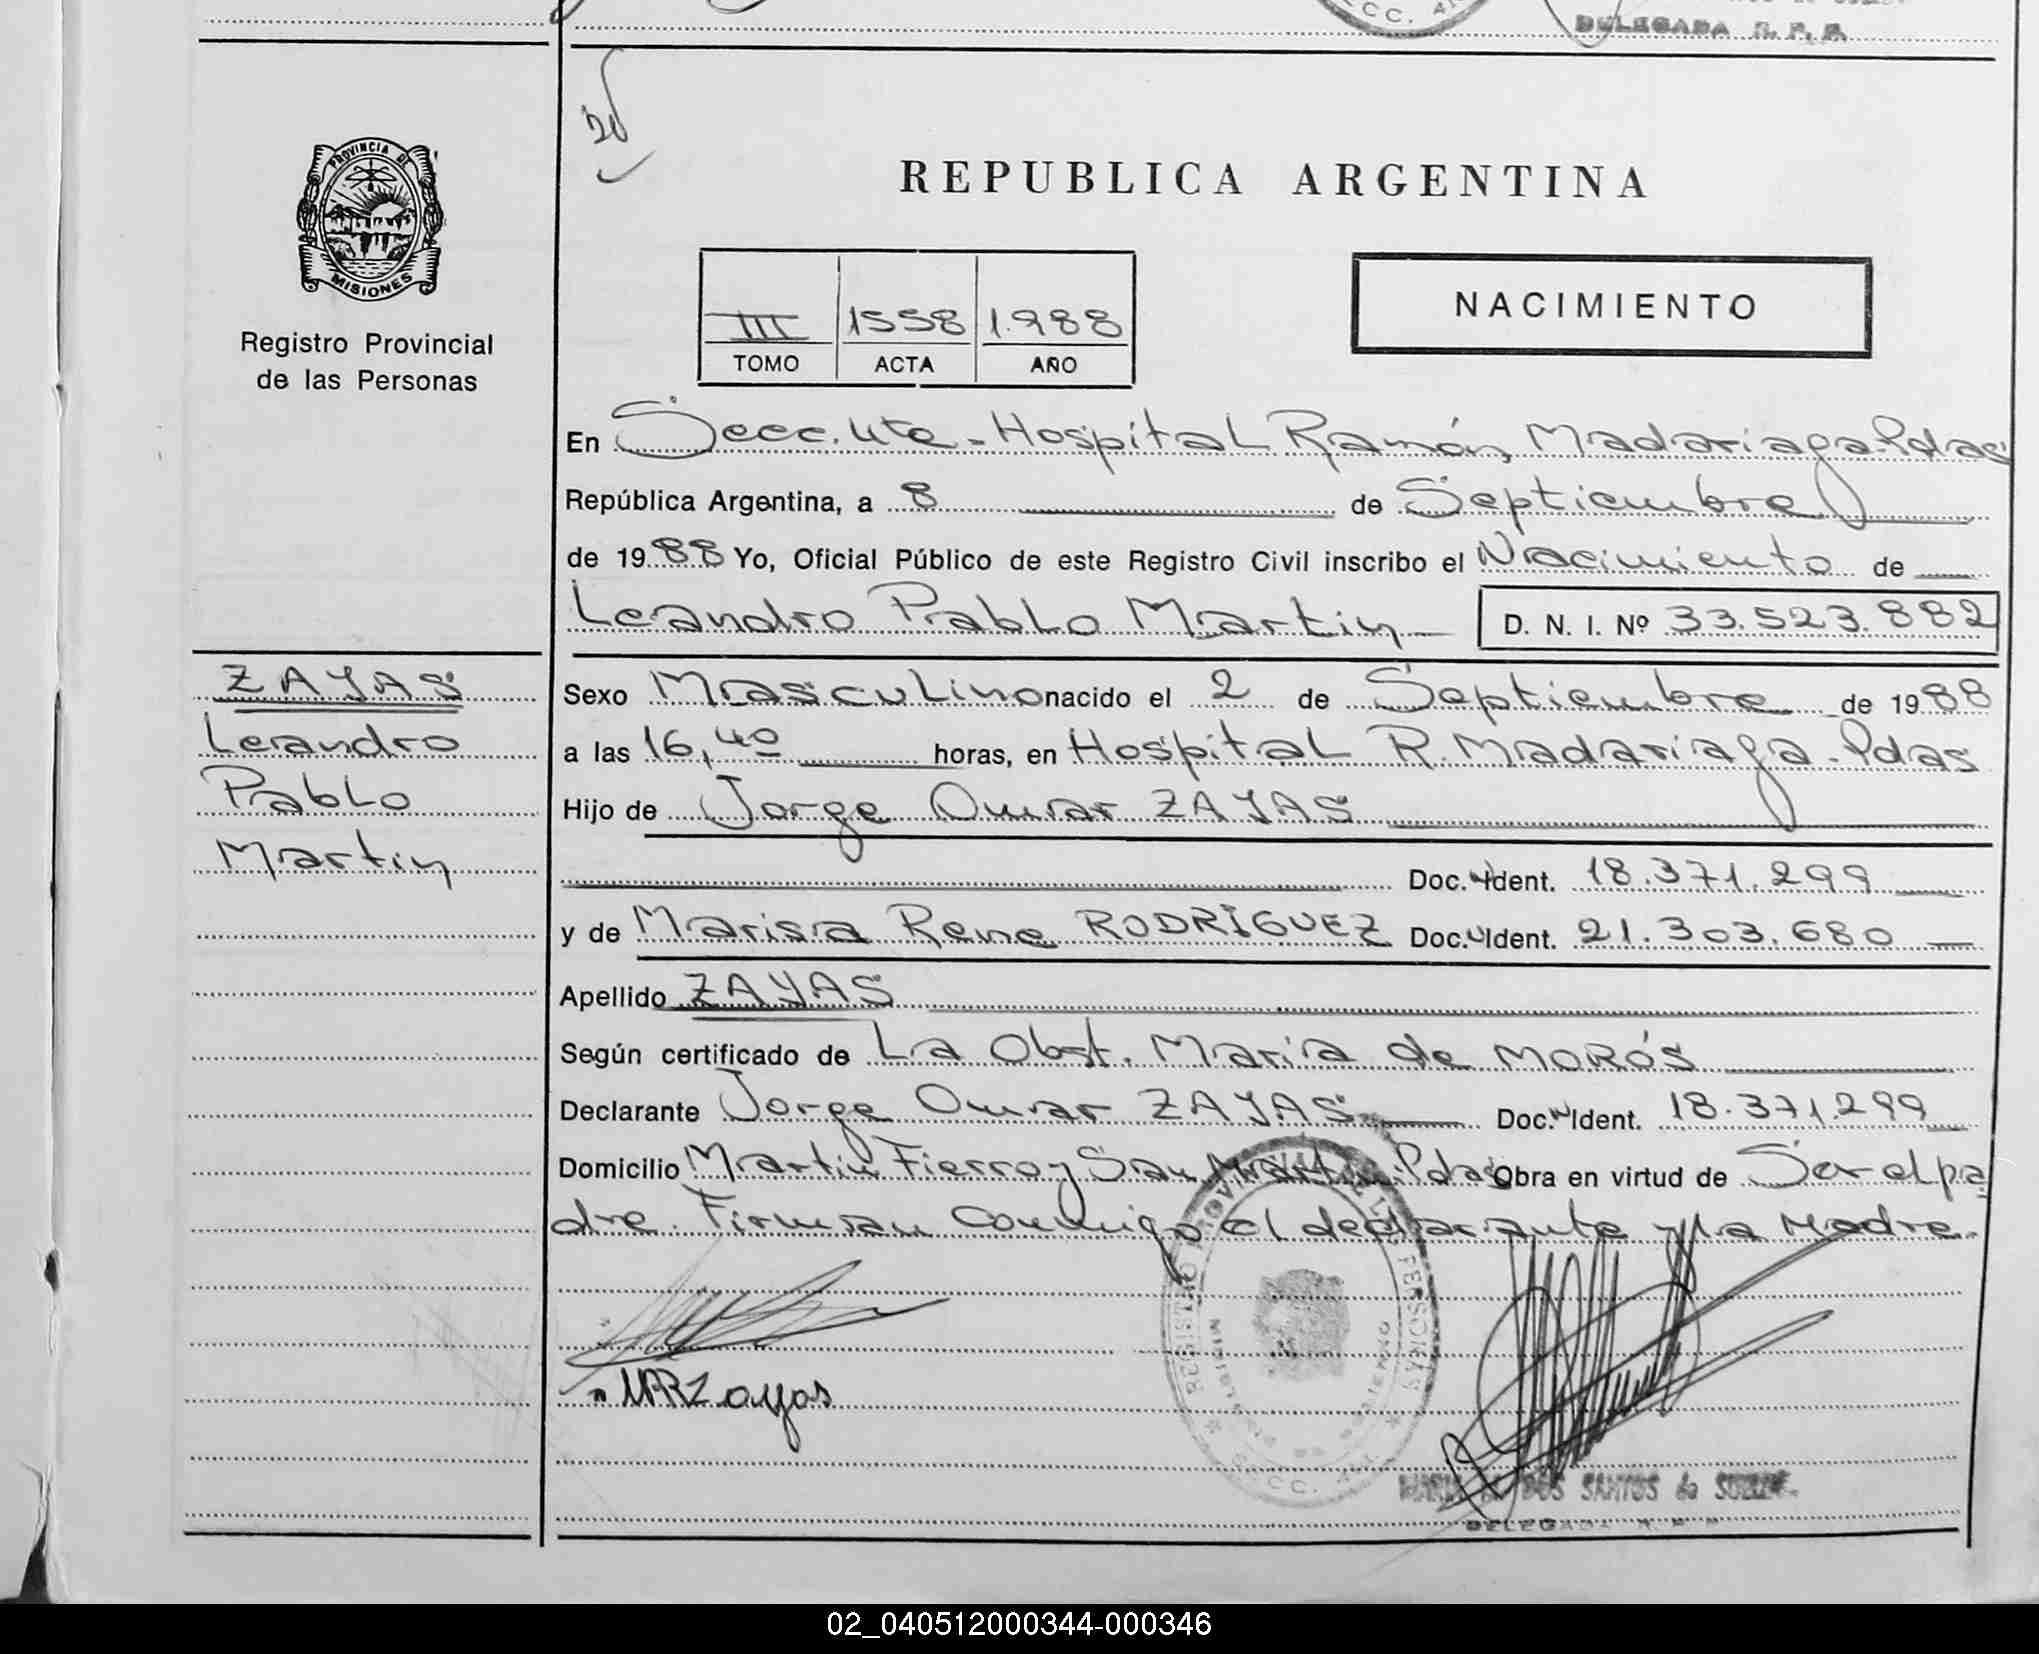 DELEGADA R. P. P.
PROVINCIA DE
MISIONES
Registro Provincial
de las Personas
REPUBLICA ARGENTINA
III 1558 1.988
TOMO ACTA AÑO
NACIMIENTO
En Secc. 4ta - Hospital Ramón Madariaga - Pdas
República Argentina, a 8 de Septiembre
de 1988 Yo, Oficial Público de este Registro Civil inscribo el Nacimiento de
Leandro Pablo Martin D. N. I. Nº 33.523.882
ZAYAS
Leandro
Pablo
Martin
Sexo Masculino nacido el 2 de Septiembre de 1988
a las 16,40 horas, en Hospital R. Madariaga - Pdas
Hijo de Jorge Omar ZAYAS
Doc. Ident. 18.371.299
y de Marisa Rene RODRÍGUEZ Doc. Ident. 21.303.680
Apellido ZAYAS
Según certificado de La Obst. María de MORÓS
Declarante Jorge Omar ZAYAS Doc. Ident. 18.371.299
Domicilio Martin Fierro y San Martin - Pdas Obra en virtud de Ser el pa
dre. Firman Conmigo el declarante y la Madre.
MRZayas
DOS SANTOS de
DELEGADA R. P. P.
02_040512000344-000346